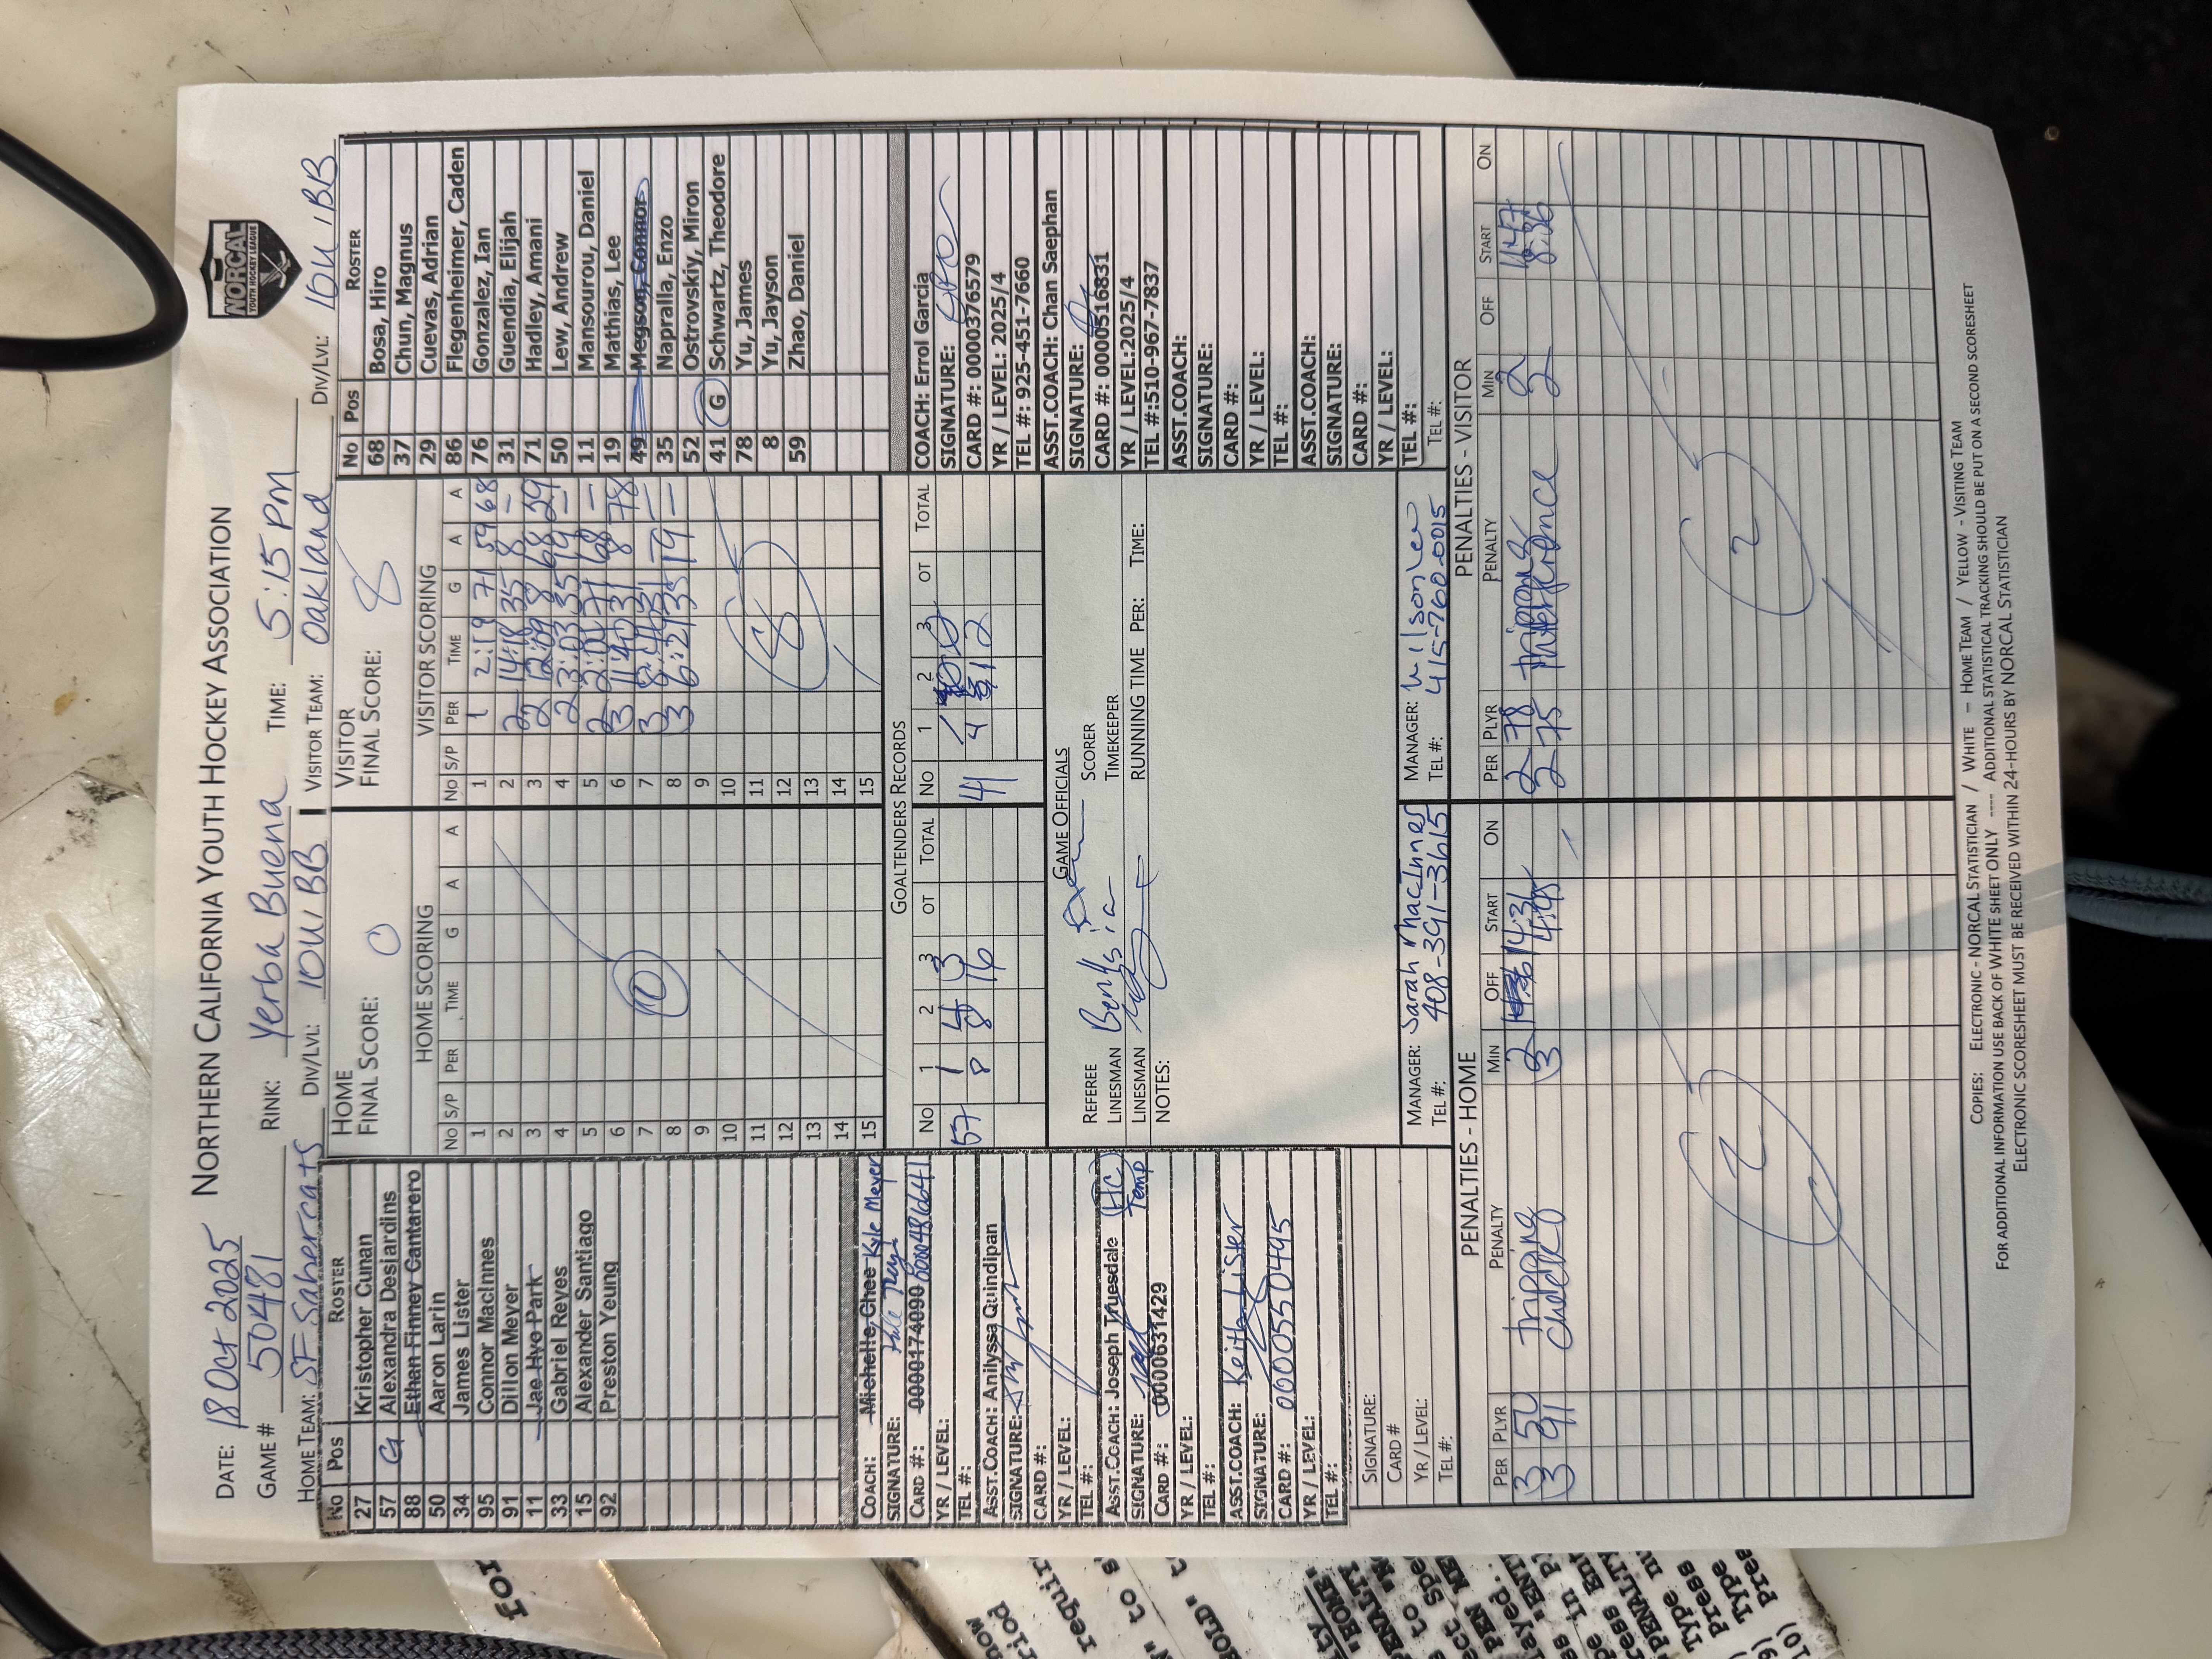 NORTHERN CALIFORNIA YOUTH HOCKEY ASSOCIATION
NORCAL
YOUTH HOCKEY LEAGUE
DATE: 18 Oct 2025
GAME # 50481 RINK: Yerba Buena TIME: 5:15 PM
HOME TEAM: SF Sabercats DIV/LVL: 10U BB VISITOR TEAM: Oakland DIV/LVL: 10U BB
No Pos ROSTER
27 Kristopher Cunan
57 G Alexandra Desjardins
88 Ethan Finney Cantarero
50 Aaron Larin
34 James Lister
95 Connor MacInnes
91 Dillon Meyer
11 Jae Hyo Park
33 Gabriel Reyes
15 Alexander Santiago
92 Preston Yeung
COACH: Michelle Chee Kyle Meyer
SIGNATURE:
CARD #: 0000174090
YR / LEVEL:
TEL #:
ASST.COACH: Anilyssa Quindipan
SIGNATURE:
CARD #:
YR / LEVEL:
TEL #:
ASST.COACH: Joseph Truesdale (HC)
SIGNATURE: Temp
CARD #: 0000631429
YR / LEVEL:
TEL #:
ASST.COACH: Keith Lister
SIGNATURE:
CARD #: 0000550495
YR / LEVEL:
TEL #:
SIGNATURE:
CARD #
YR / LEVEL:
TEL #:
HOME
FINAL SCORE: 0
HOME SCORING
No S/P PER TIME G A A
1
2
3
4
5
6
7
8
9
10
11
12
13
14
15
0
VISITOR
FINAL SCORE: 8
VISITOR SCORING
No S/P PER TIME G A A
1 1 2:19 71 59 68
2 2 14:18 35 8 —
3 2 12:09 8 68 29
4 2 3:03 35 19 —
5 2 2:01 71 68 —
6 3 11:40 31 8 78
7 3 31 —
8 3 6:21 35 19 —
9
10
11
12
13
14
15
8
GOALTENDERS RECORDS
No 1 2 3 OT TOTAL No 1 2 3 OT TOTAL
57 1 4 3
8 8 16
41
GAME OFFICIALS
REFEREE SCORER
LINESMAN TIMEKEEPER
LINESMAN RUNNING TIME PER: TIME:
NOTES:
MANAGER: Sarah MacInnes
TEL #: 408-391-3615
MANAGER: Wilson Lew
TEL #: 415-760-0015
No Pos ROSTER
68 Bosa, Hiro
37 Chun, Magnus
29 Cuevas, Adrian
86 Flegenheimer, Caden
76 Gonzalez, Ian
31 Guendia, Elijah
71 Hadley, Amani
50 Lew, Andrew
11 Mansourou, Daniel
19 Mathias, Lee
49 Megson, Connor
35 Napralla, Enzo
52 Ostrovskiy, Miron
41 G Schwartz, Theodore
78 Yu, James
8 Yu, Jayson
59 Zhao, Daniel
COACH: Errol Garcia
SIGNATURE:
CARD #: 0000376579
YR / LEVEL: 2025/4
TEL #: 925-451-7660
ASST.COACH: Chan Saephan
SIGNATURE:
CARD #: 0000516831
YR / LEVEL:2025/4
TEL #:510-967-7837
ASST.COACH:
SIGNATURE:
CARD #:
YR / LEVEL:
TEL #:
ASST.COACH:
SIGNATURE:
CARD #:
YR / LEVEL:
TEL #:
TEL #:
PENALTIES - HOME
PER PLYR PENALTY MIN OFF START ON
3 50 tripping 2 14:31
3 91
2
PENALTIES - VISITOR
PER PLYR PENALTY MIN OFF START ON
2 78 tripping 2 11:47
2 75 Interference 2 8:36
2
COPIES: ELECTRONIC - NORCAL STATISTICIAN / WHITE – HOME TEAM / YELLOW - VISITING TEAM
FOR ADDITIONAL INFORMATION USE BACK OF WHITE SHEET ONLY ---- ADDITIONAL STATISTICAL TRACKING SHOULD BE PUT ON A SECOND SCORESHEET
ELECTRONIC SCORESHEET MUST BE RECEIVED WITHIN 24-HOURS BY NORCAL STATISTICIAN